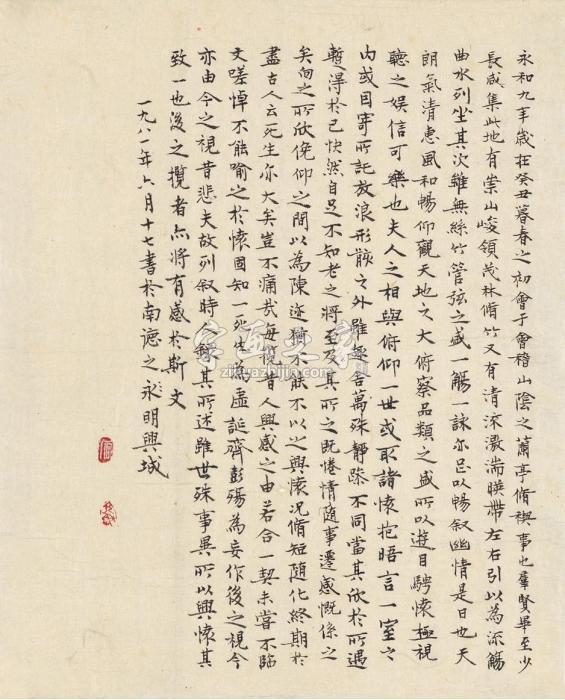 永和九年歲在癸丑暮春之初會于會稽山陰之蘭亭脩禊事也羣賢畢至少
長咸集此地有崇山峻領茂林脩竹又有清流激湍暎帶左右引以為流觴
曲水列坐其次雖無絲竹管弦之盛一觴一詠亦足以暢叙幽情是日也天
朗氣清惠風和暢仰觀天地之大俯察品類之盛所以遊目騁懷極視
聽之娛信可樂也夫人之相與俯仰一世或取諸懷抱晤言一室之
內或因寄所託放浪形骸之外雖趣舍萬殊靜躁不同當其欣於所遇
暫得於己快然自足不知老之將至及其所之既惓情隨事遷感慨係之
矣向之所欣俛仰之間以為陳迹猶不能不以之興懷況脩短隨化終期於
盡古人云死生亦大矣豈不痛哉每攬昔人興感之由若合一契未嘗不臨
文嗟悼不能喻之於懷固知一死生為虛誕齊彭殤為妄作後之視今
亦由今之視昔悲夫故列叙時人錄其所述雖世殊事異所以興懷其
致一也後之攬者亦將有感於斯文
一九八一年六月十七書於南
之永明興城
字画之家
zihuazhijia.com